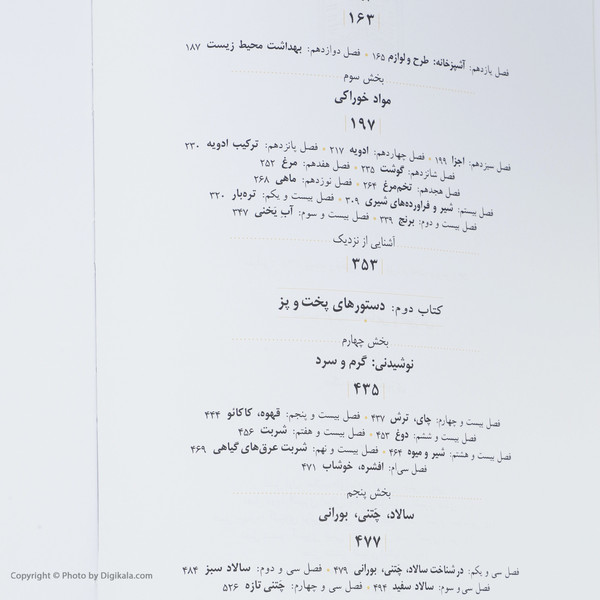 ۱۶۳
فصل یازدهم: آشپزخانه: طرح و لوازم ۱۶۵ • فصل دوازدهم: بهداشت محیط زیست ۱۸۷
بخش سوم
مواد خوراکی
۱۹۷
فصل سیزدهم: اجزا ۱۹۹ • فصل چهاردهم: ادویه ۲۱۷ • فصل پانزدهم: ترکیب ادویه ۲۳۰
فصل شانزدهم: گوشت ۲۳۵ • فصل هفدهم: مرغ ۲۵۲
فصل هجدهم: تخم‌مرغ ۲۶۴ • فصل نوزدهم: ماهی ۲۶۸
فصل بیستم: شیر و فراورده‌های شیری ۳۰۹ • فصل بیست و یکم: تره‌بار ۳۲۰
فصل بیست و دوم: برنج ۳۳۹ • فصل بیست و سوم: آب یَخنی ۳۴۷
آشنایی از نزدیک
۳۵۳
کتاب دوم: دستورهای پخت و پز
بخش چهارم
نوشیدنی: گرم و سرد
۴۳۵
فصل بیست و چهارم: چای، ترش ۴۳۷ • فصل بیست و پنجم: قهوه، کاکائو ۴۴۴
فصل بیست و ششم: دوغ ۴۵۳ • فصل بیست و هفتم: شربت ۴۵۶
فصل بیست و هشتم: شیر و میوه ۴۶۴ • فصل بیست و نهم: شربت عرق‌های گیاهی ۴۶۹
فصل سی‌اُم: افشره، خوشاب ۴۷۱
بخش پنجم
سالاد، چَتنی، بورانی
۴۷۷
فصل سی و یکم: در شناخت سالاد، چَتنی، بورانی ۴۷۹ • فصل سی و دوم: سالاد سبز ۴۸۴
فصل سی و سوم: سالاد سفید ۴۹۴ • فصل سی و چهارم: چَتنی تازه ۵۲۶
Copyright © Photo by Digikala.com